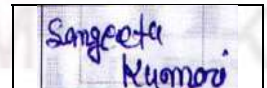 Sangeeta
Kumari